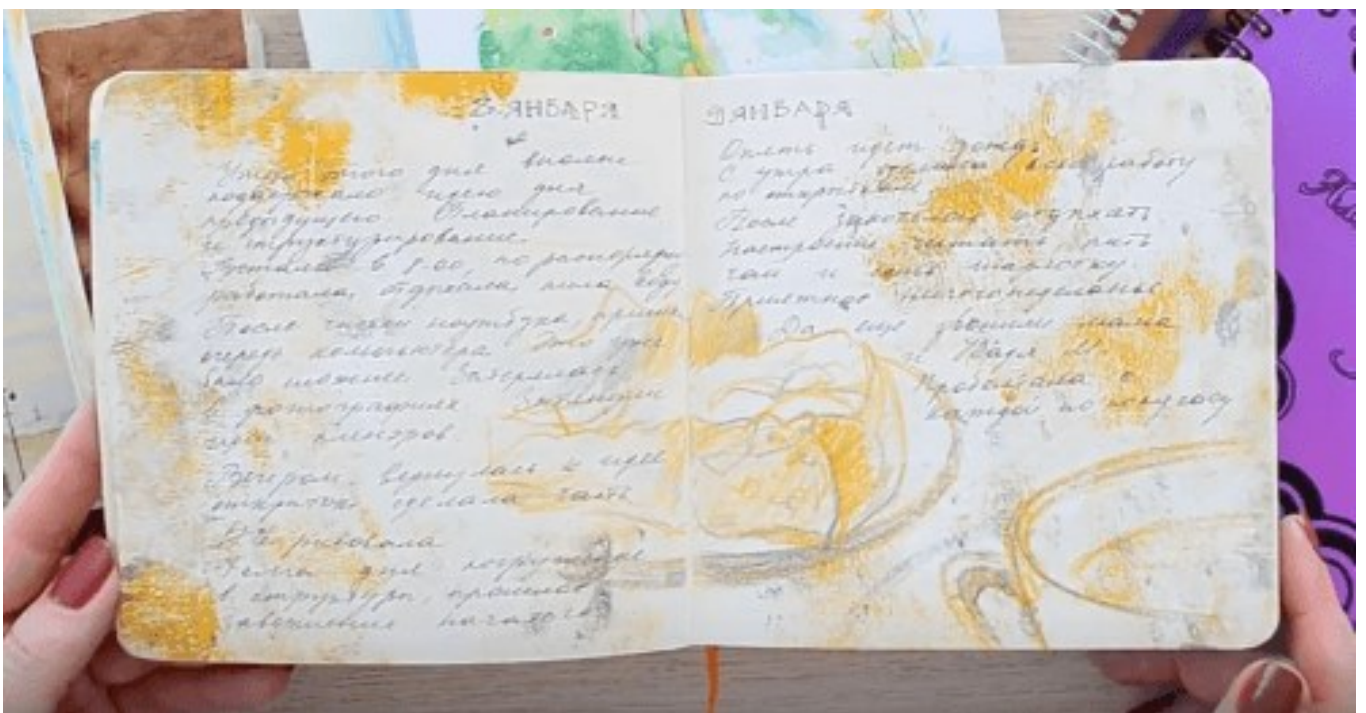 8 ЯНВАРЯ
Утро этого дня вполне
подытожило идею дня
предыдущего. Планирование
и структурирование.
Встала в 8-00, по распорядку
работала, отдыхала, пила воду
После чистки ноутбука пришла
очередь компьютера. Это уже
было сложнее. Затерялась
в фотографиях.
Вечером вернулась к идее
открыток, сделала часть
рисовала
Тема дня погружение
в структуры, прошлое,
завершение начатого
9 ЯНВАРЯ
Опять идет дождь.
С утра всю работу
по открыткам
После захотелось
настроение читать, пить
чай и есть шарлотку
Приятное ничегонеделанье
Да еще звонили мама
и Надя М.
Проболтала с
каждой по полчаса